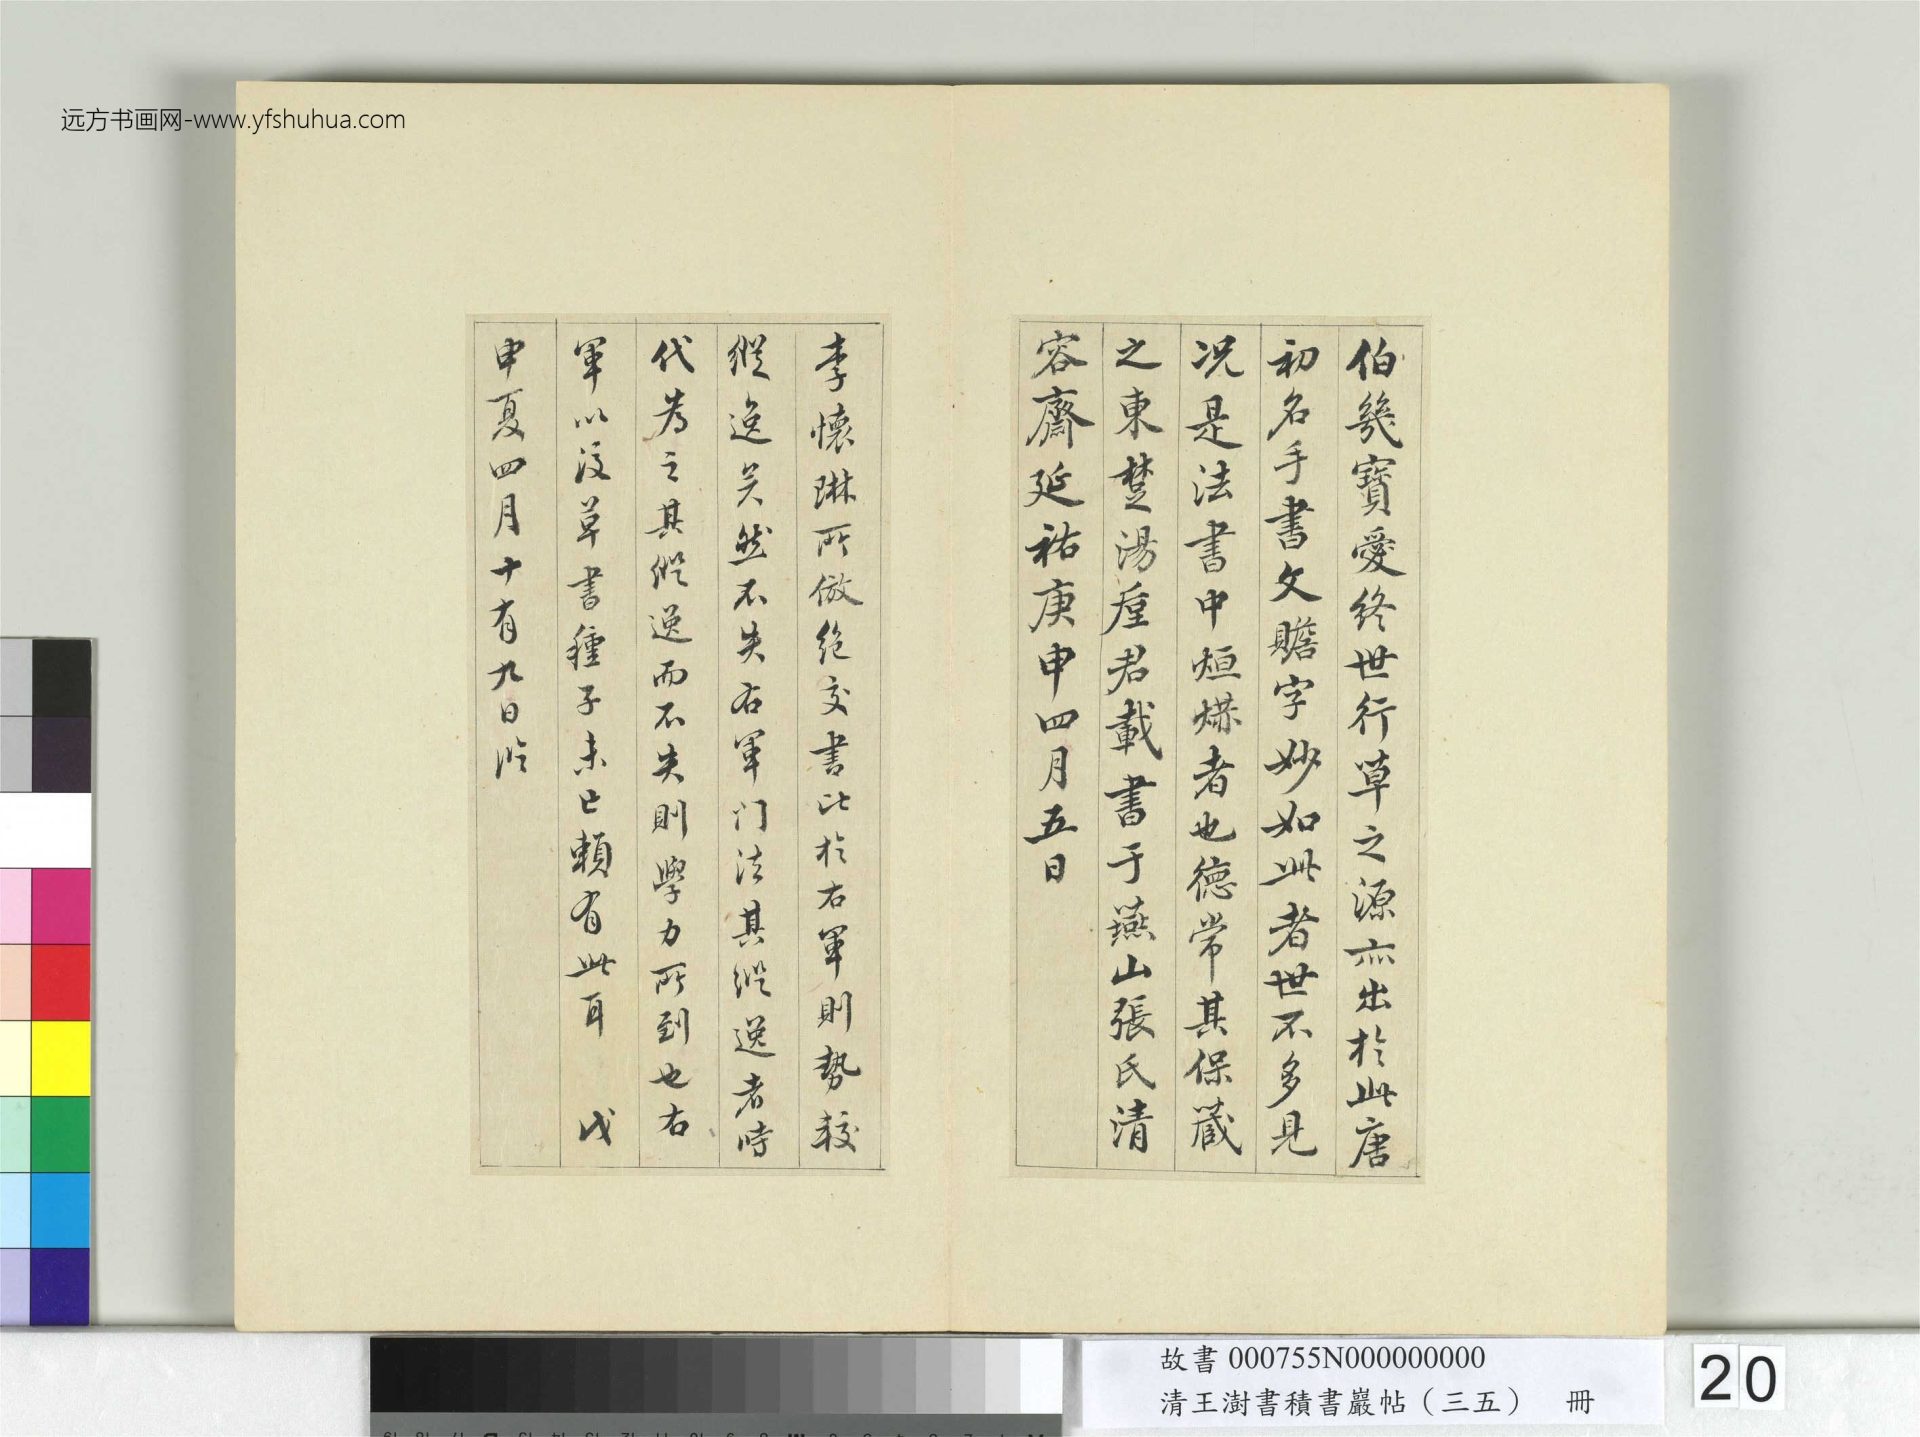 远方书画网-www.yfshuhua.com
伯幾寶愛終世行草之源亦出於此唐
初名手書文贍字妙如此者世不多見
况是法書中烜爀者也德常其保蔵
之東楚湯垕君載書于燕山張氏清
容齋延祐庚申四月五日
李懷琳所倣絶交書比於右軍則勢較
縱逸矣然不失右軍门法其縱逸者時
代為之其縱逸而不失則學力所到也右
軍以後草書種子未亡賴有此耳 戊
申夏四月十有九日臨
故書 000755N000000000
清王澍書積書巖帖（三五） 冊
20